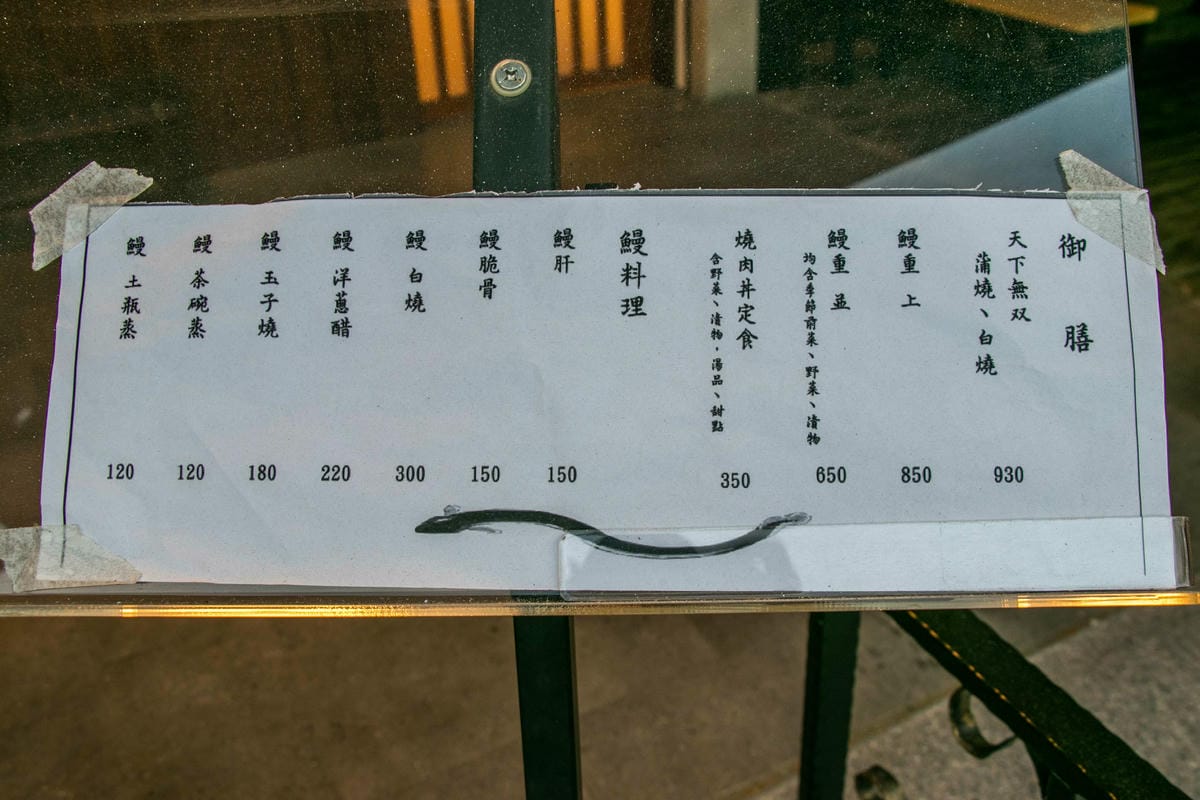 御膳
天下無双
蒲燒、白燒
930
鰻重 上
850
鰻重 並
均含季節前菜、野菜、漬物
650
燒肉丼定食
含野菜、漬物，湯品、甜點
350
鰻料理
鰻肝
150
鰻脆骨
150
鰻 白燒
300
鰻 洋蔥醋
220
鰻 玉子燒
180
鰻 茶碗蒸
120
鰻 土瓶蒸
120